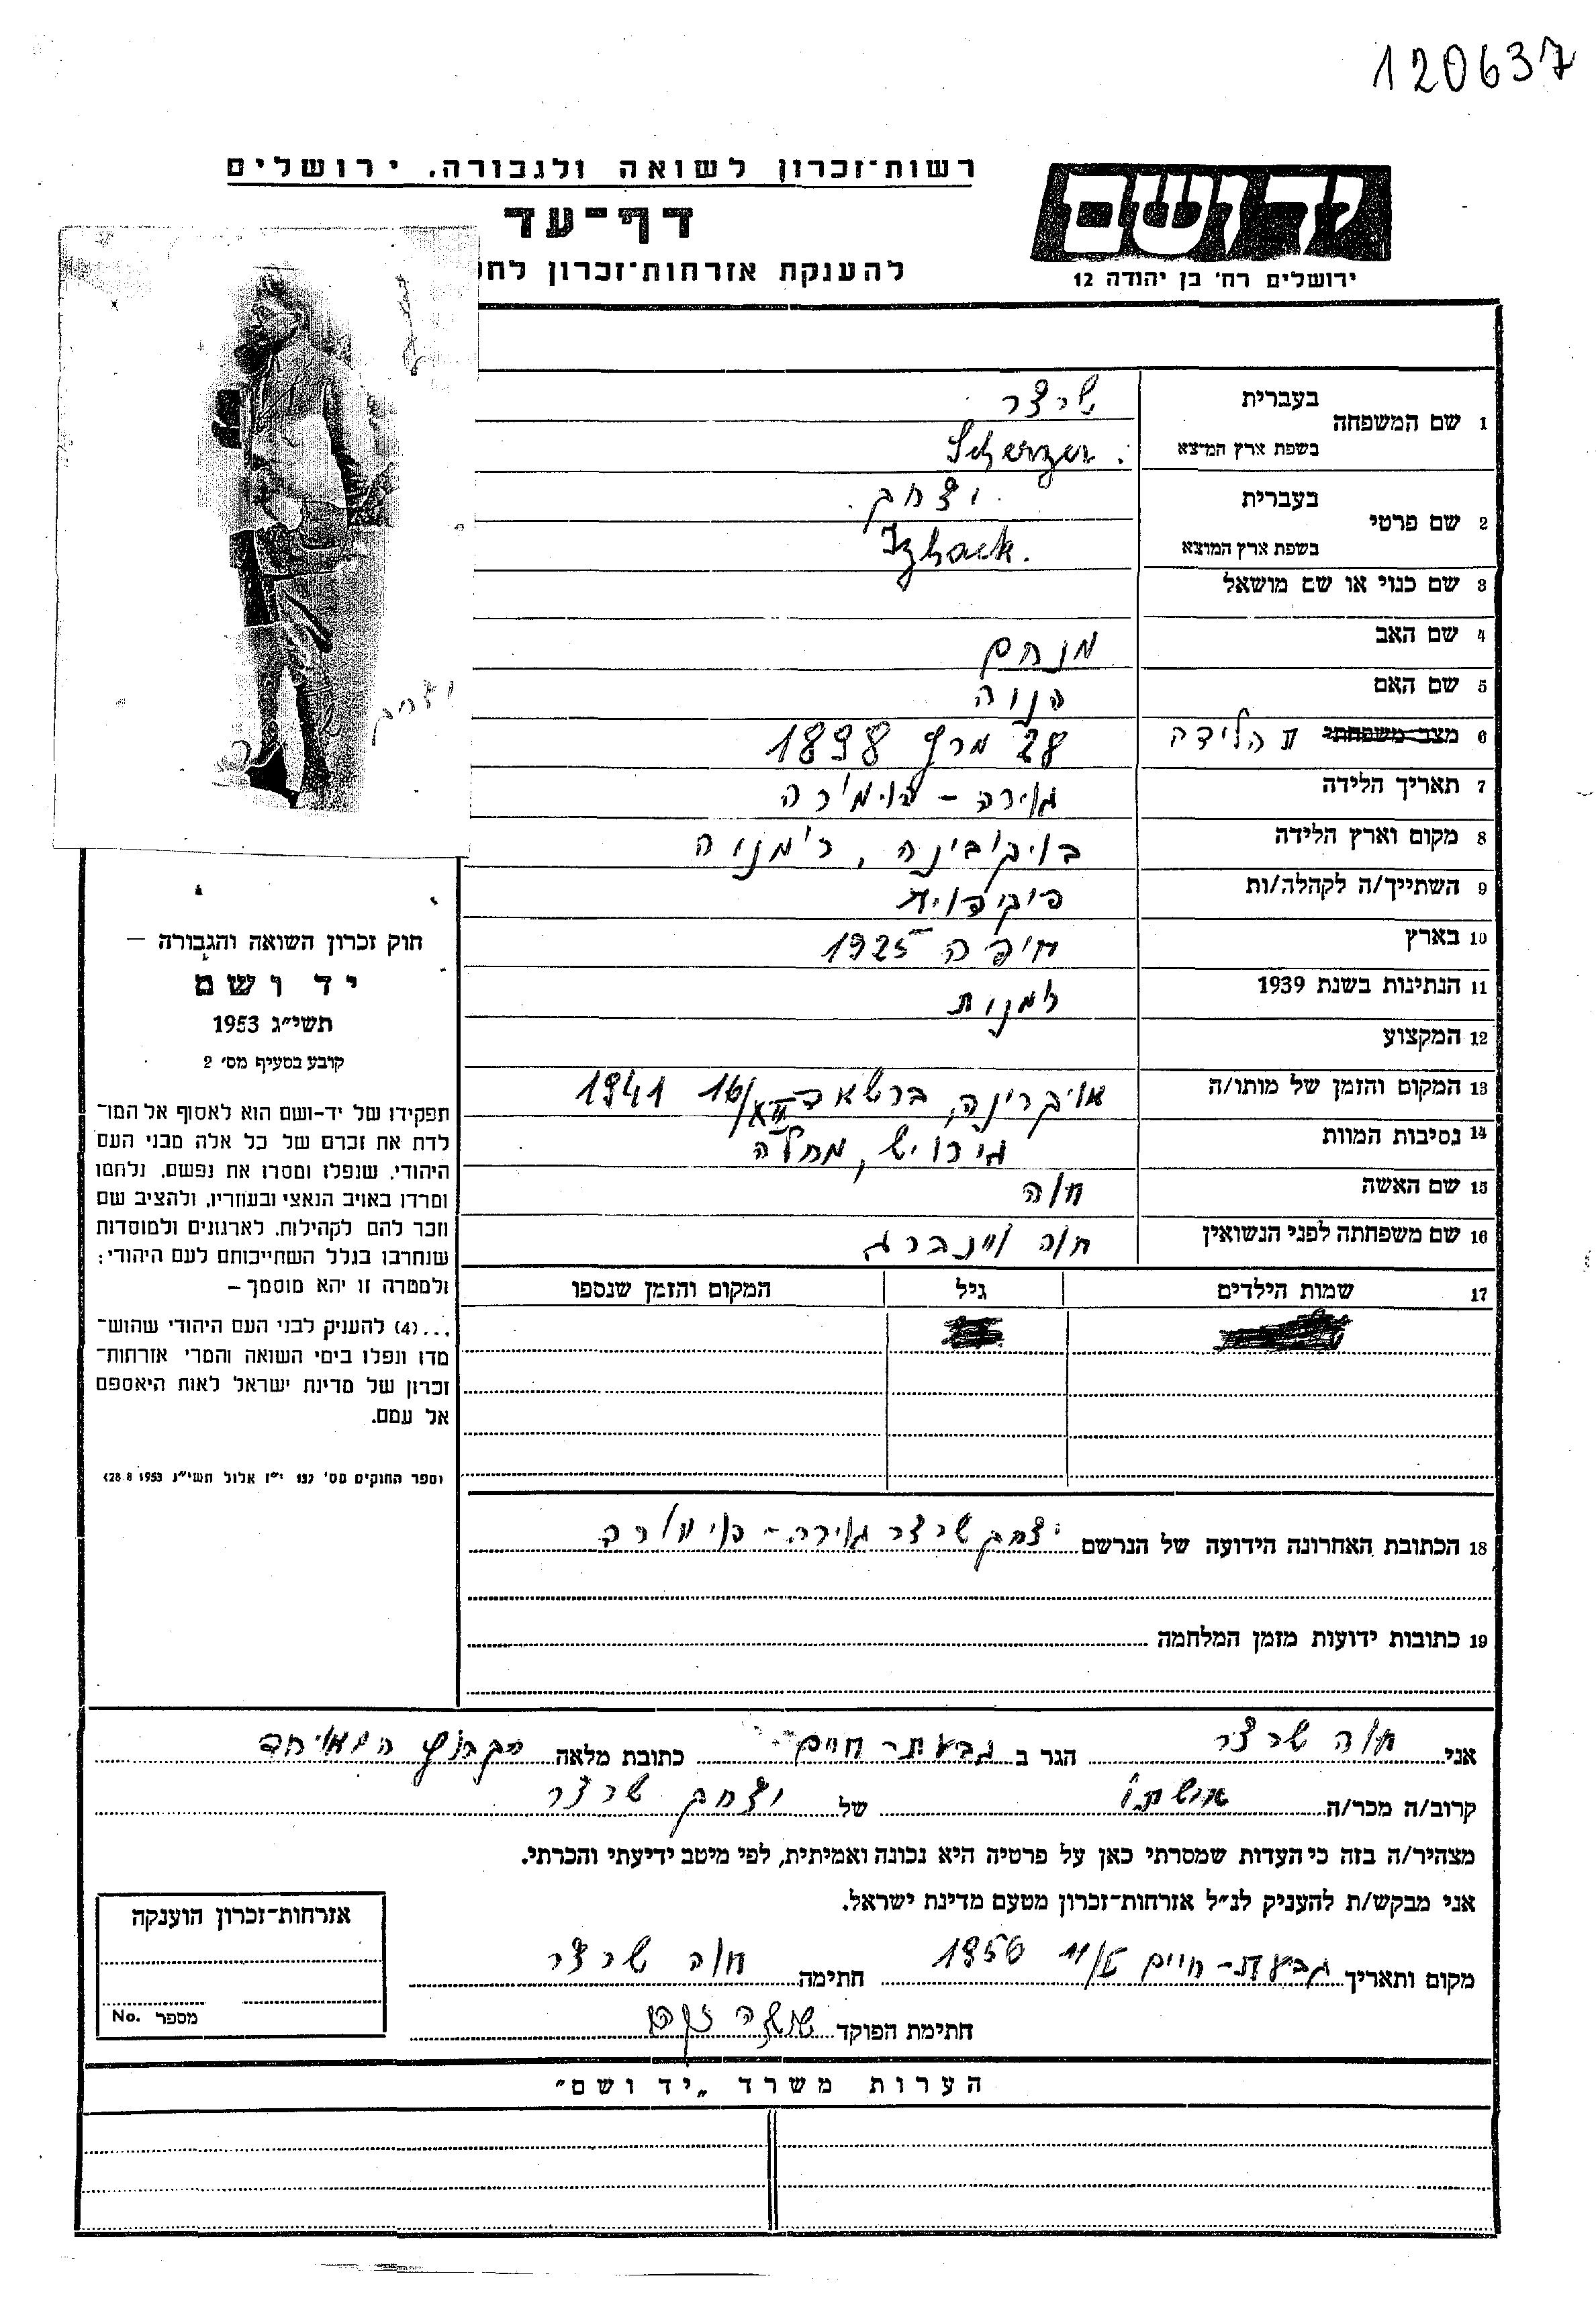 120637
רשות־זכרון לשואה ולגבורה, ירושלים
יד ושם
דף־עד
ירושלים רח' בן יהודה 12
להענקת אזרחות־זכרון לח
1 שם המשפחה
בעברית שרצר
בשפת ארץ המוצא Scherzer
2 שם פרטי
בעברית יצחק
בשפת ארץ המוצא Izhack.
3 שם כנוי או שם מושאל
4 שם האב מנחם
5 שם האם
יצחק
6 מצב משפחתי הלידה 28 מרץ 1898
7 תאריך הלידה
8 מקום וארץ הלידה בוקובינה, רומניה
9 השתייך/ה לקהלה/ות
10 בארץ חיפה 1925
11 הנתינות בשנת 1939 רומנית
12 המקצוע
13 המקום והזמן של מותו/ה אוקרינה, ברשאד 16/XII 1941
14 נסיבות המוות גירוש, מחלה
15 שם האשה חוה
16 שם משפחתה לפני הנשואין חוה ויינברג
17 שמות הילדים גיל המקום והזמן שנספו
חוק זכרון השואה והגבורה —
יד ושם
תשי״ג 1953
קובע בסעיף מס' 2
תפקידו של יד-ושם הוא לאסוף אל המו־
לדת את זכרם של כל אלה מבני העם
היהודי, שנפלו ומסרו את נפשם, נלחמו
ומרדו באויב הנאצי ובעוזריו, ולהציב שם
וזכר להם לקהילות, לארגונים ולמוסדות
שנחרבו בגלל השתייכותם לעם היהודי;
ולמטרה זו יהא מוסמך —
...(4) להעניק לבני העם היהודי שהוש־
מדו ונפלו בימי השואה והמרי אזרחות־
זכרון של מדינת ישראל לאות היאספם
אל עמם.
(ספר החוקים מס' 132 י״ז אלול תשי״ג 28.8.1953)
18 הכתובת האחרונה הידועה של הנרשם יצחק שרצר
19 כתובות ידועות מזמן המלחמה
אני חוה שרצר הגר ב גבעת-חיים כתובת מלאה הקבוץ המאוחד
קרוב/ה מכר/ה אשתו של יצחק שרצר
מצהיר/ה בזה כי העדות שמסרתי כאן על פרטיה היא נכונה ואמיתית, לפי מיטב ידיעתי והכרתי.
אני מבקש/ת להעניק לנ״ל אזרחות־זכרון מטעם מדינת ישראל.
מקום ותאריך גבעת-חיים 1956 חתימה חוה שרצר
חתימת הפוקד
אזרחות־זכרון הוענקה
מספר No.
הערות משרד „יד ושם״